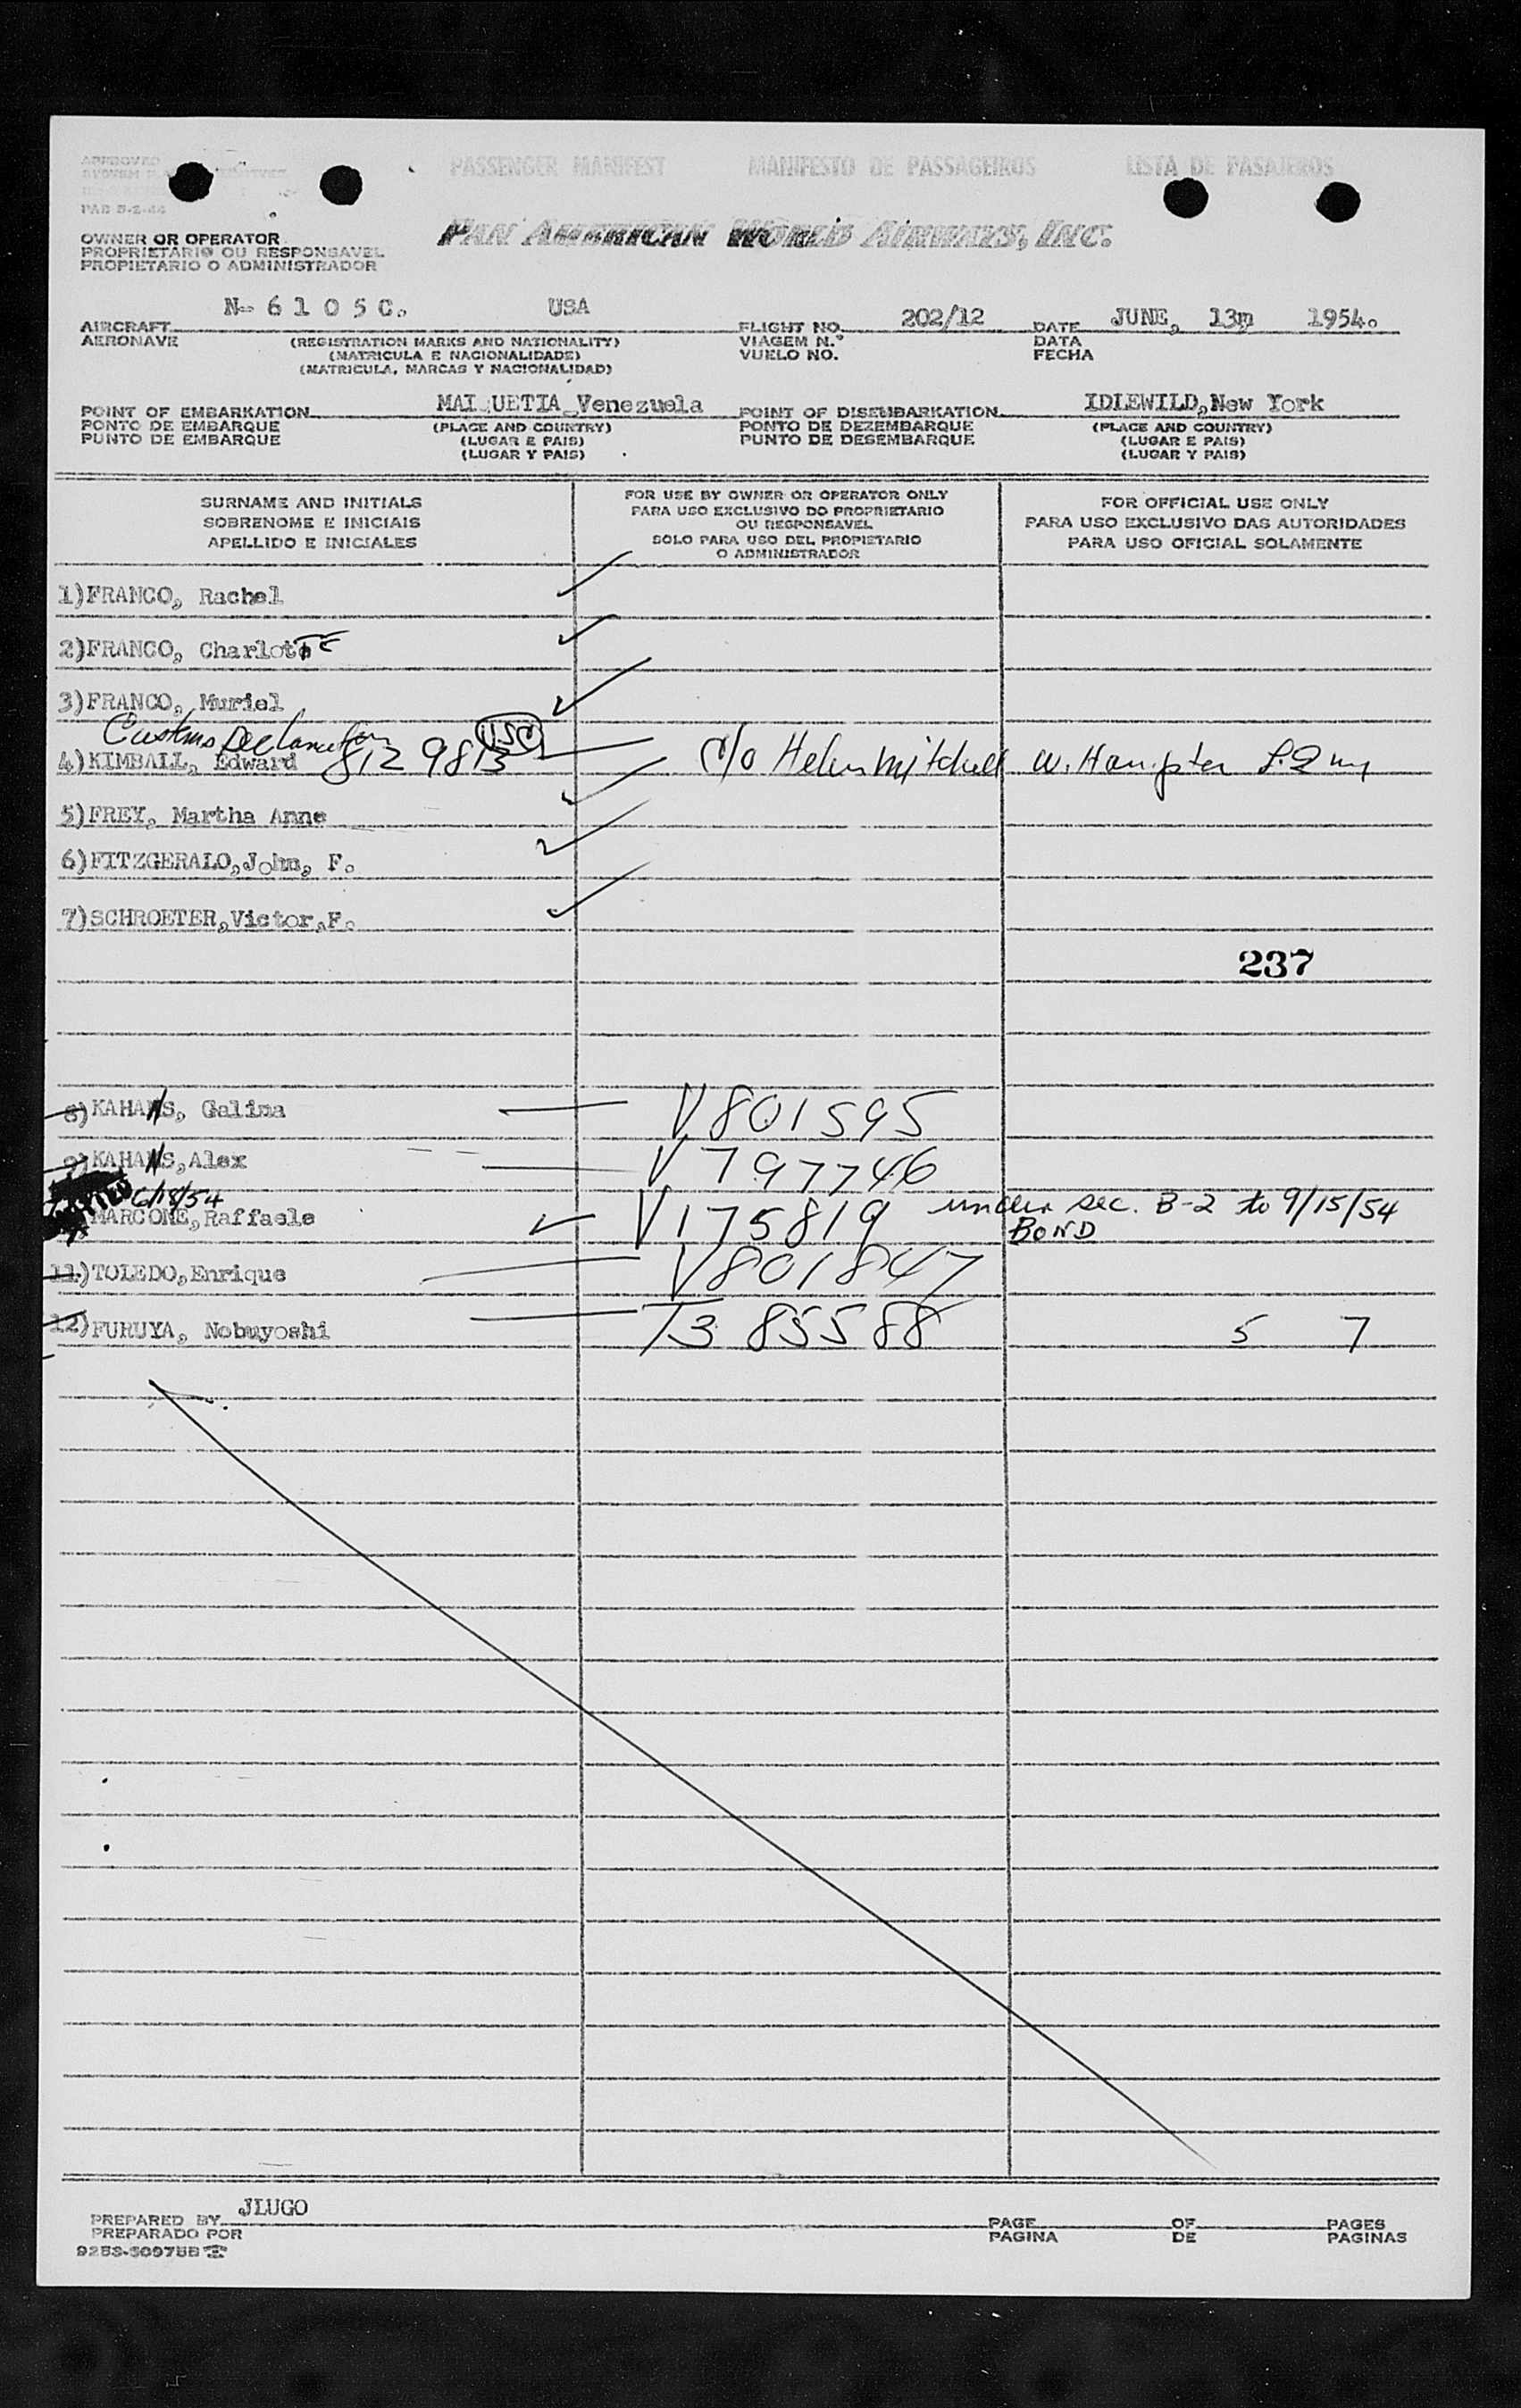 APPROVED
PAB 5-2-44
PASSENGER MANIFEST MANIFESTO DE PASSAGEIROS LISTA DE PASAJEROS
PAN AMERICAN WORLD AIRWAYS, INC.
OWNER OR OPERATOR
PROPRIETARIO OU RESPONSAVEL
PROPIETARIO O ADMINISTRADOR
N- 6 1 0 5 C. USA 202/12 JUNE, 13m 1954.
AIRCRAFT FLIGHT NO. DATE
AERONAVE (REGISTRATION MARKS AND NATIONALITY) VIAGEM N.º DATA
(MATRICULA E NACIONALIDADE) VUELO NO. FECHA
(MATRICULA, MARCAS Y NACIONALIDAD)
MAI UETIA Venezuela IDLEWILD, New York
POINT OF EMBARKATION POINT OF DISEMBARKATION
PONTO DE EMBARQUE (PLACE AND COUNTRY) PONTO DE DEZEMBARQUE (PLACE AND COUNTRY)
PUNTO DE EMBARQUE (LUGAR E PAIS) PUNTO DE DESEMBARQUE (LUGAR E PAIS)
(LUGAR Y PAIS) (LUGAR Y PAIS)
SURNAME AND INITIALS
SOBRENOME E INICIAIS
APELLIDO E INICIALES
FOR USE BY OWNER OR OPERATOR ONLY
PARA USO EXCLUSIVO DO PROPRIETARIO
OU RESPONSAVEL
SOLO PARA USO DEL PROPIETARIO
O ADMINISTRADOR
FOR OFFICIAL USE ONLY
PARA USO EXCLUSIVO DAS AUTORIDADES
PARA USO OFICIAL SOLAMENTE
1)FRANCO, Rachel
2)FRANCO, CharlotTE
3)FRANCO, Muriel
Customs Declaration USC
4)KIMBALL, Edward 812 9813 c/o Helen Mitchell W. Hampton L.I NY
5)FREY, Martha Anne
6)FITZGERALO,John, F.
7)SCHROETER,Victor,F.
237
8)KAHANS, Galina V801595
9)KAHANS,Alex V797746
6/18/54
MARCONE,Raffaele V175819 under sec. B-2 to 9/15/54
BOND
11)TOLEDO,Enrique V801847
12)FURUYA, Nobuyoshi T3 85588 5 7
JLUGO
PREPARED BY PAGE OF PAGES
PREPARADO POR PAGINA DE PAGINAS